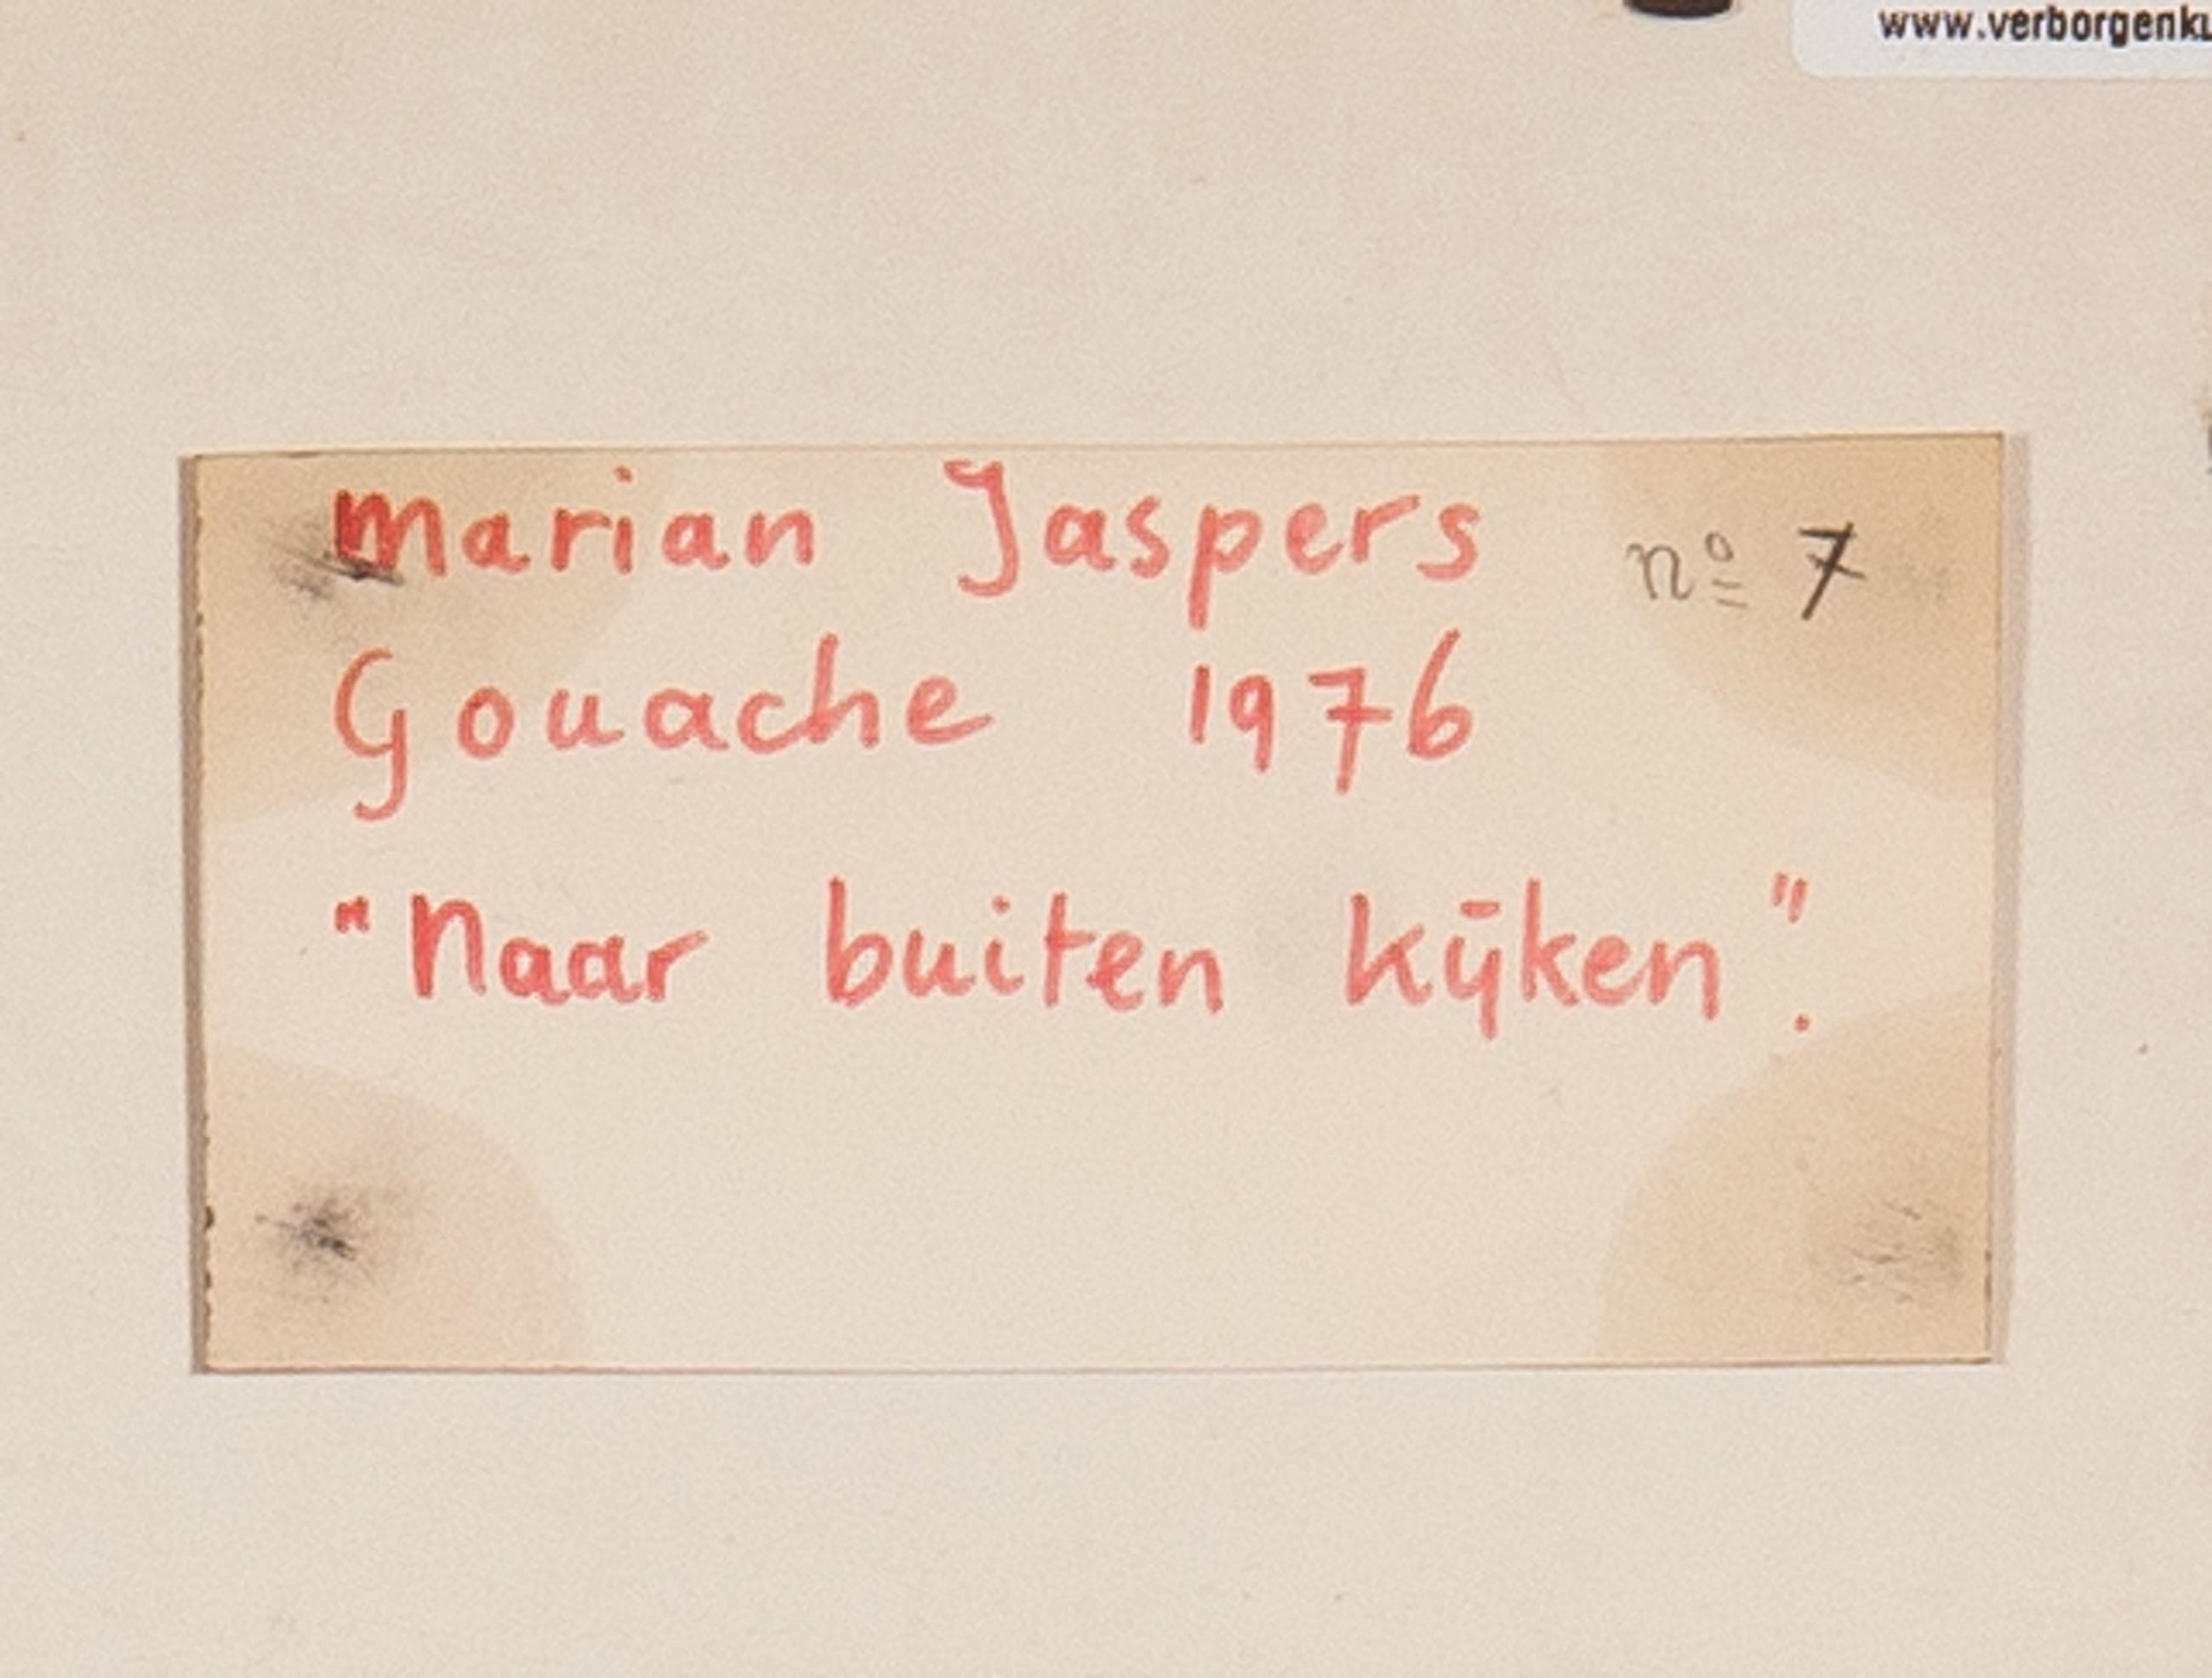 www.verborgenku
Marian Jaspers nº 7
Gouache 1976
"Naar buiten kijken".